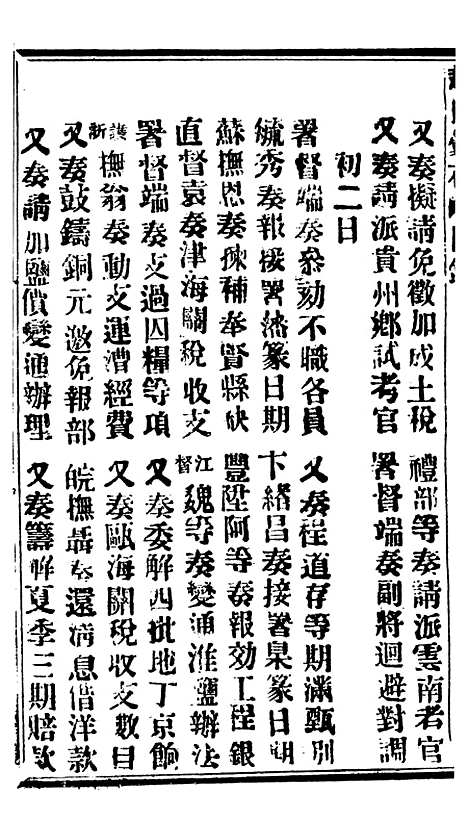 又奏擬請免徵加成土稅　禮部等奏請派雲南考官
又奏請派貴州鄉試考官　署督端奏副將迴避對調
初二日
署督端奏叅劾不職各員　又奏程道存等期滿甄別
毓秀奏報接署藩篆日期　卞緒昌奏接署臬篆日期
蘇撫恩奏揀補奉賢縣缺　豐陞阿等奏報効工程銀
直督袁奏津海關稅收支　江督魏等奏變通淮鹽辦法
署督端奏支過囚糧等項　又奏委解四批地丁京餉
護新撫翁奏動支運漕經費　又奏甌海關稅收支數目
又奏鼓鑄銅元邀免報部　皖撫聶奏還淸息借洋款
又奏請加鹽價變通辦理　又奏籌解夏季三期賠款